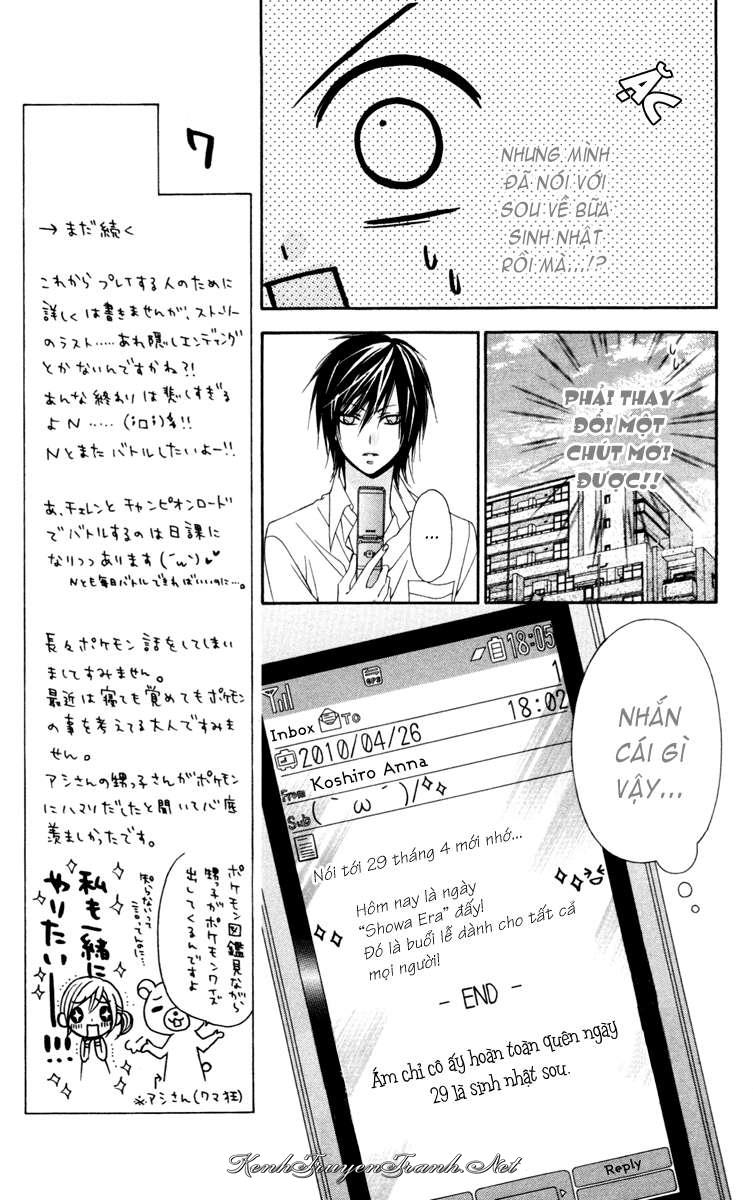 ẶC
NHƯNG MÌNH
ĐÃ NÓI VỚI
SOU VỀ BỮA
SINH NHẬT
RỒI MÀ...!?
7
→まだ続く
これからプレイする人のために
詳しくは書きませんが、ストーリー
のラスト……あれ隠しエンディング
とかないんですかね?!
あんな終わりは悲しすぎる
よN……
Nとまたバトルしたいよー!!
あ、チェレンとチャンピオンロード
でバトルするのは日課に
なりつつあります(´ω`)♥
Nとも毎日バトルできればいいのに…。
長々ポケモン話をしてしまい
ましてすみません。
最近は寝ても覚めてもポケモン
の事を考えてる大人ですみま
せん。
アシさんの甥っ子さんがポケモン
にハマりだしたと聞いて心底
羨ましかったです。
ポケモン図鑑見ながら
甥っ子がポケモンクイズ
出してくるんですよ
知らないって
言ってるのに…
私も一緒に
やりたいー!!!
※アシさん(クマ狂)
PHẢI THAY
ĐỔI MỘT
CHÚT MƠI
ĐƯỢC!!
...
NHẮN
CÁI GÌ
VẬY...
GPS
18:05
1
Inbox TO
18:02
2010/04/26
From Koshiro Anna
Sub (｀ω´)/
Nói tới 29 tháng 4 mới nhớ...
Hôm nay là ngày
“Showa Era” đấy!
Đó là buổi lễ dành cho tất cả
mọi người!
- END -
Ám chỉ cô ấy hoàn toàn quên ngày
29 là sinh nhật sou.
Reply
KenhTruyenTranh.Net